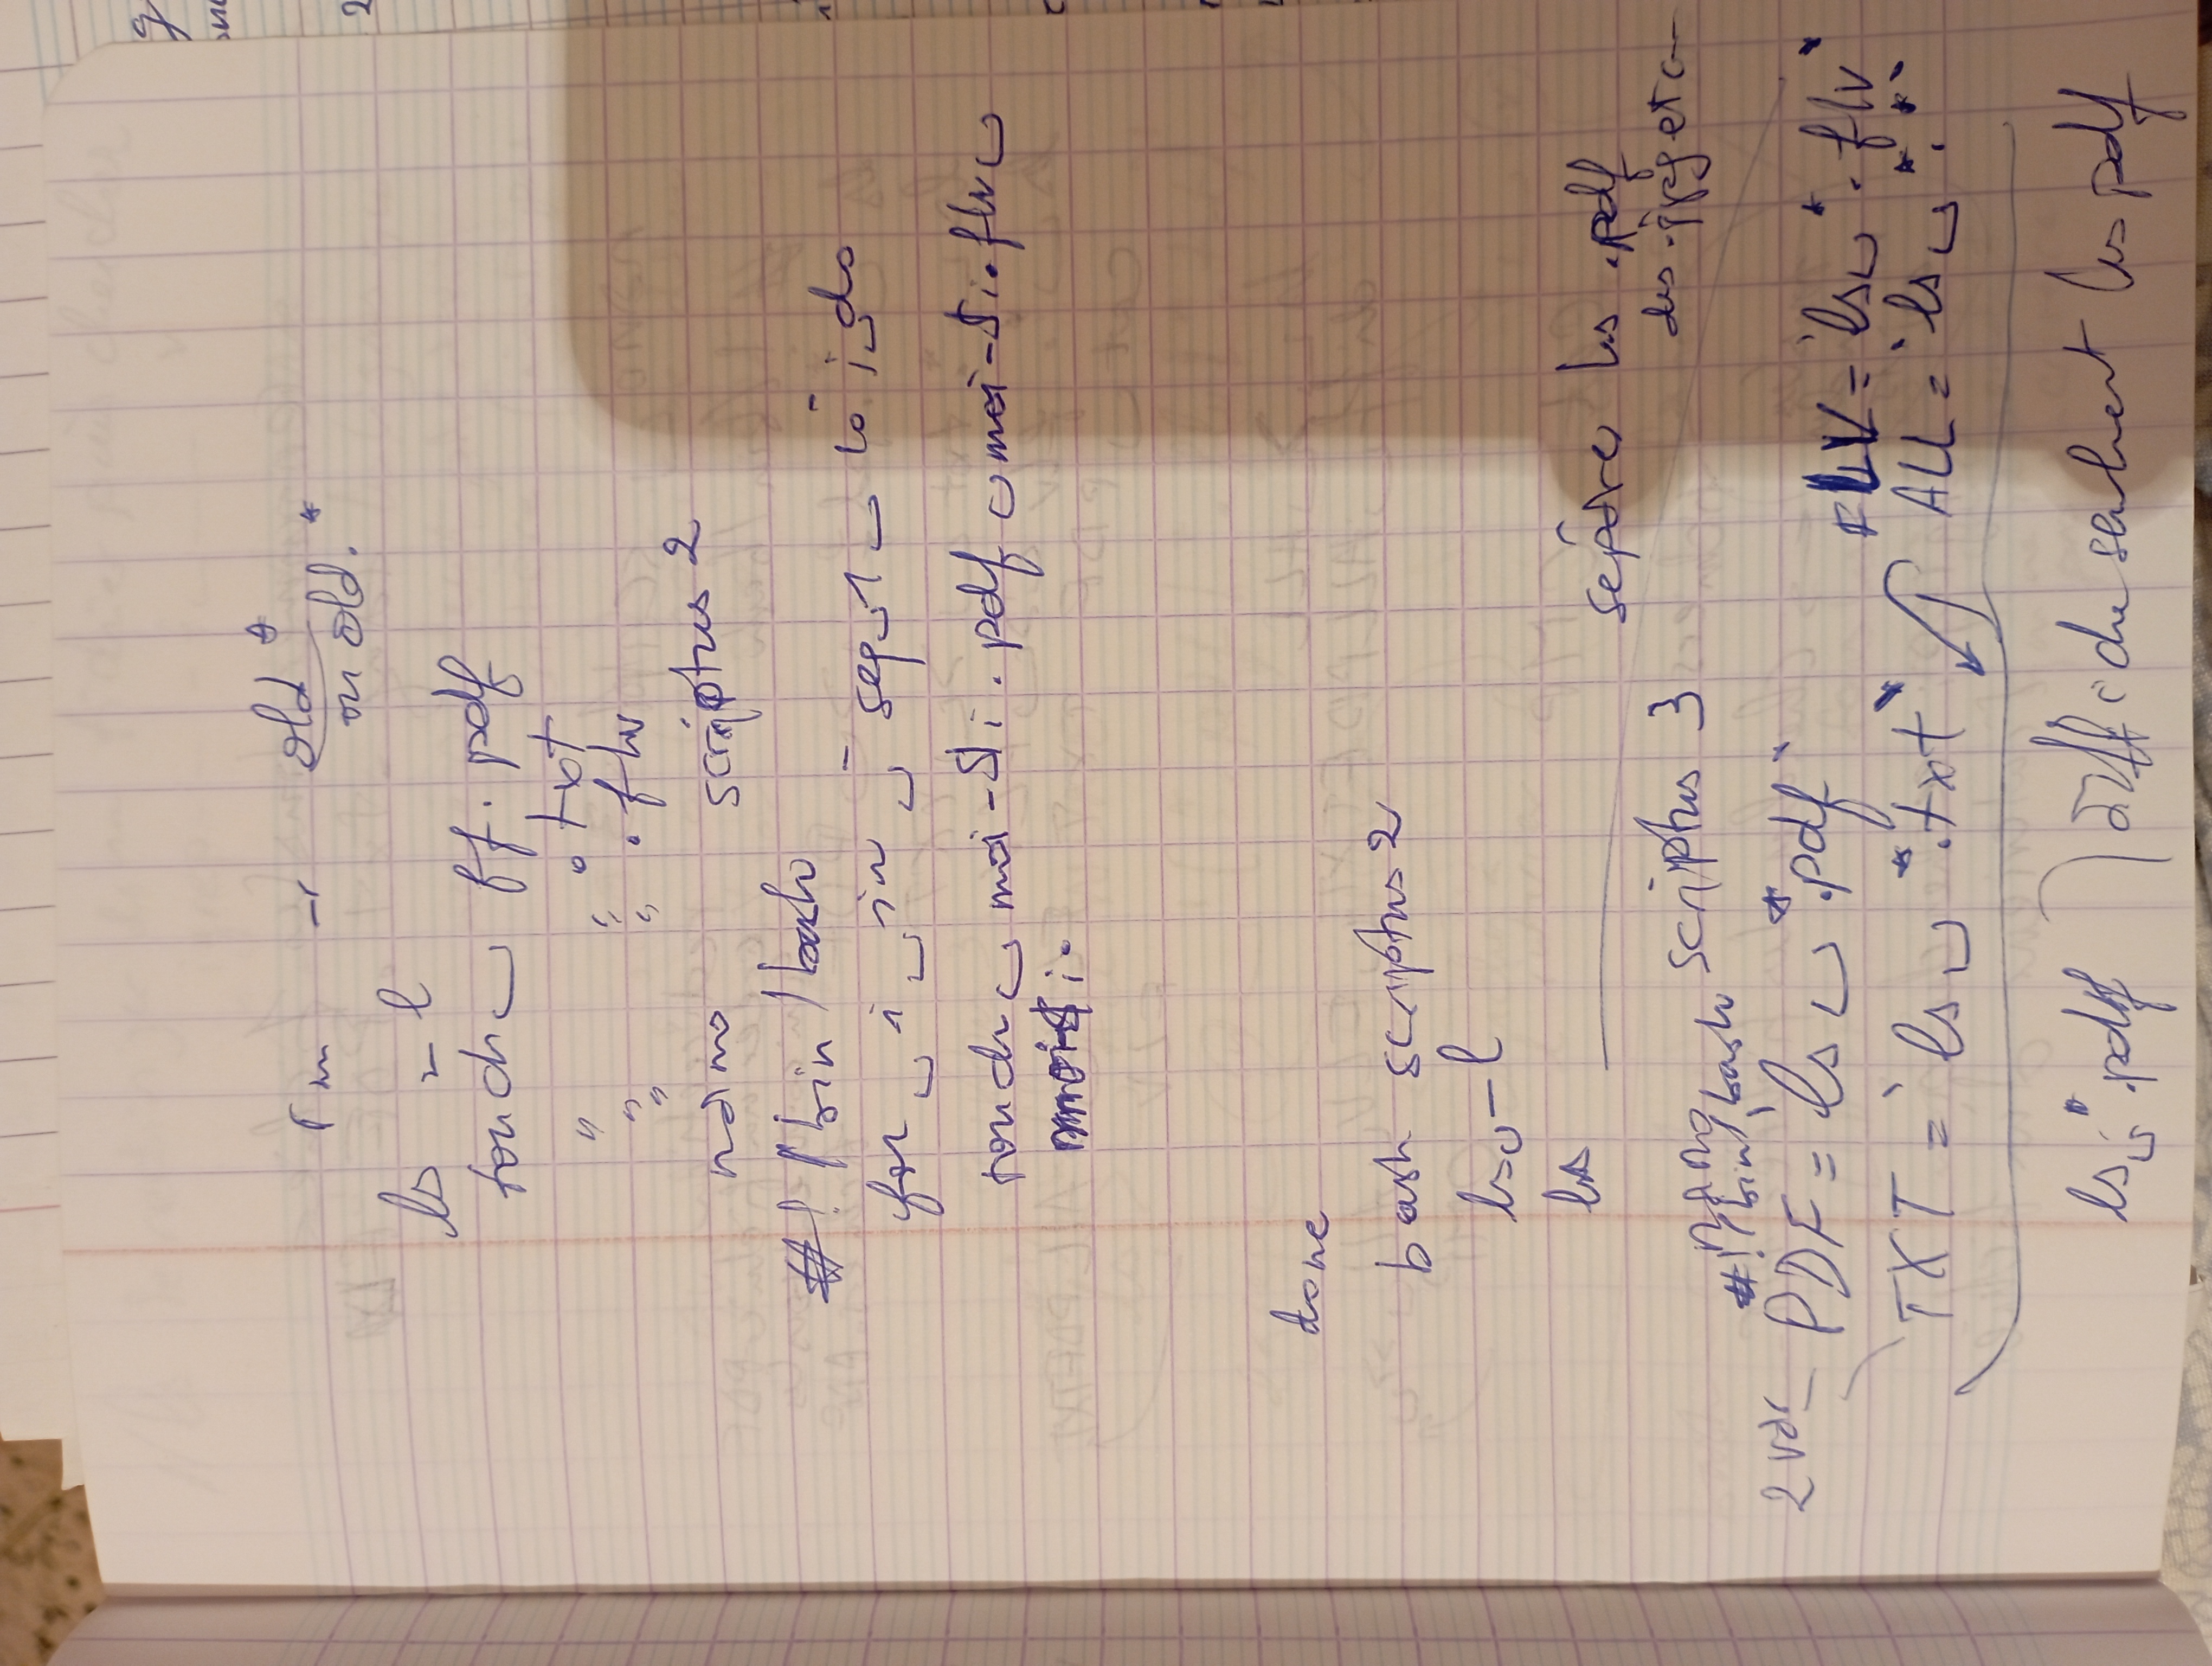 rm -r old*
ou old.*
ls -l
touch ff.pdf
" " .txt
" " .flv
nano scriptus2
#!/bin/bash
for i in `seq 1 10`; do
touch moi-$i.pdf moi-$i.flv
moi-$i.
done
bash scriptus2
ls -l
ls
séparer les .pdf
des .jpg etc
nano scriptus3
#!/bin/bash
2 var
PDF=`ls *.pdf`
FLV=`ls *.flv`
TXT=`ls *.txt`
ALL=`ls *.*`
ls *.pdf } affiche seulement les pdf